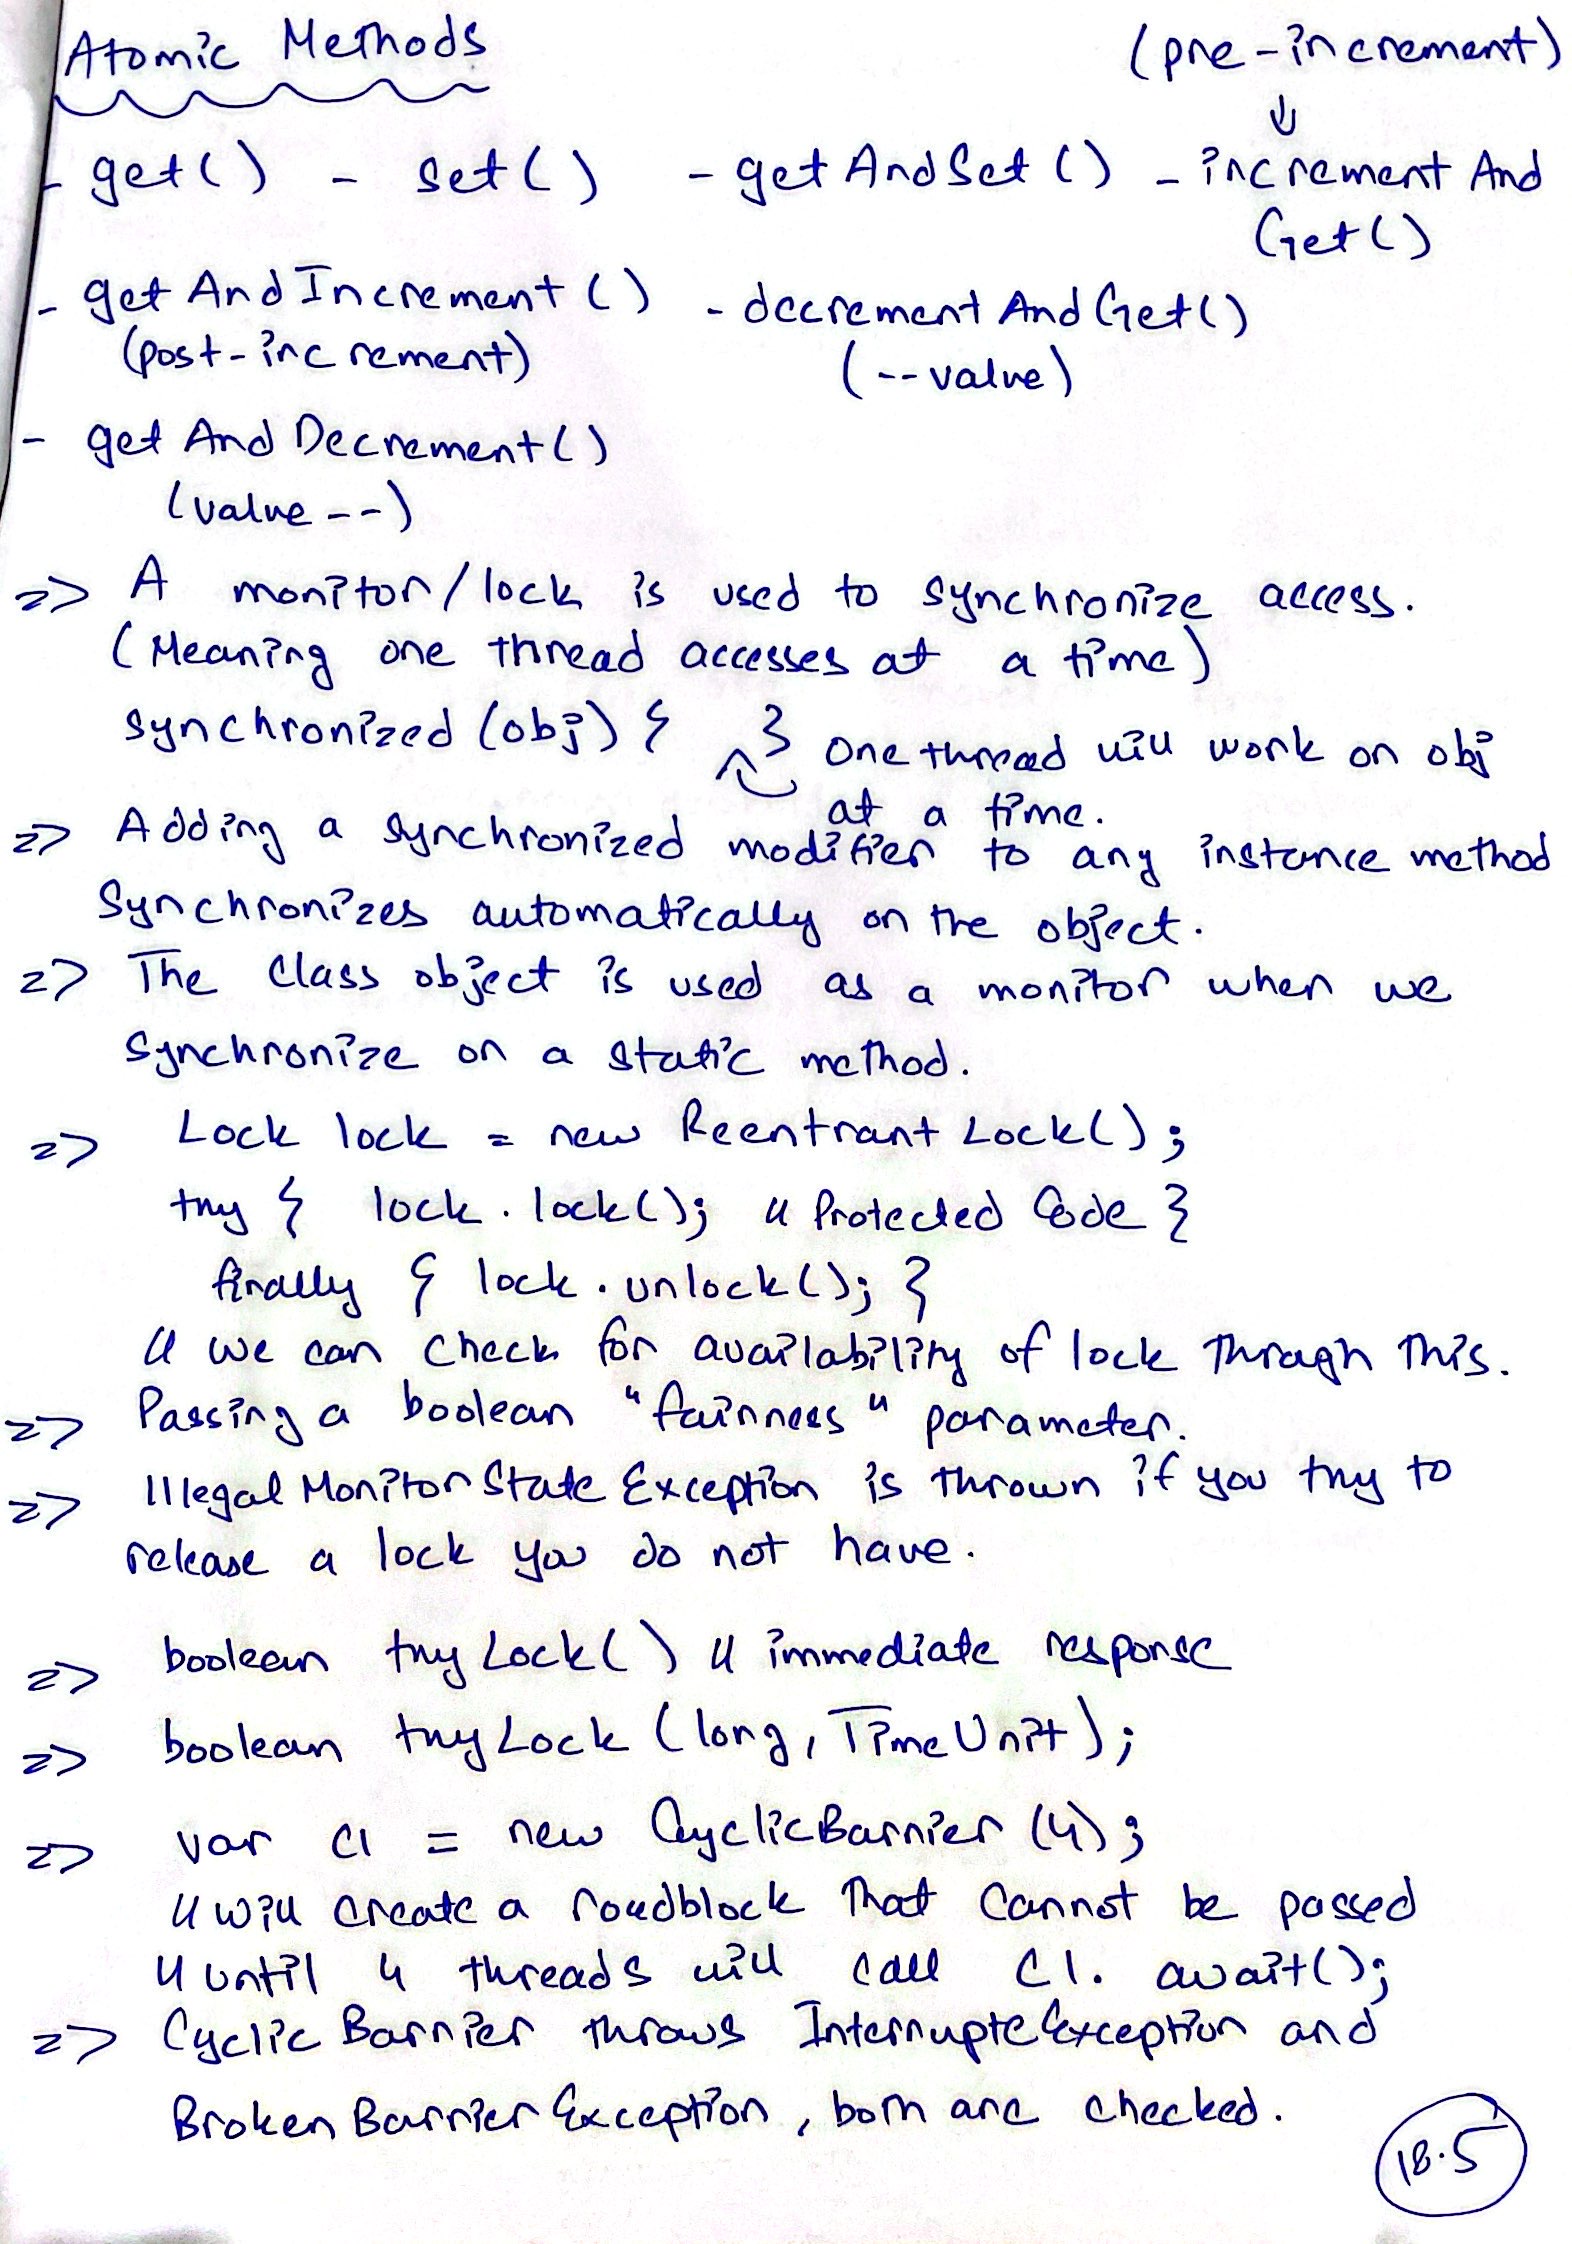 Atomic Methods
(pre-increment)
↓
- get() - set() - getAndSet() - increment And
Get()
- get And Increment() - decrement And Get()
(post-increment) (--value)
- get And Decrement()
(value--)
=> A monitor/lock is used to synchronize access.
(Meaning one thread accesses at a time)
synchronized (obj) { } One thread will work on obj
at a time.
=> Adding a synchronized modifier to any instance method
Synchronizes automatically on the object.
=> The Class object is used as a monitor when we
Synchronize on a static method.
=> Lock lock = new Reentrant Lock();
try { lock.lock(); // Protected Code }
finally { lock.unlock(); }
// we can check for availability of lock through this.
=> Passing a boolean "fairness" parameter.
=> Illegal Monitor State Exception is thrown if you try to
release a lock you do not have.
=> boolean tryLock() // immediate response
=> boolean tryLock (long, TimeUnit);
=> var c1 = new CyclicBarrier (4);
// will create a roadblock that cannot be passed
// until 4 threads will call c1. await();
=> Cyclic Barrier throws InterrupteException and
Broken Barrier Exception, both are checked.
18.5